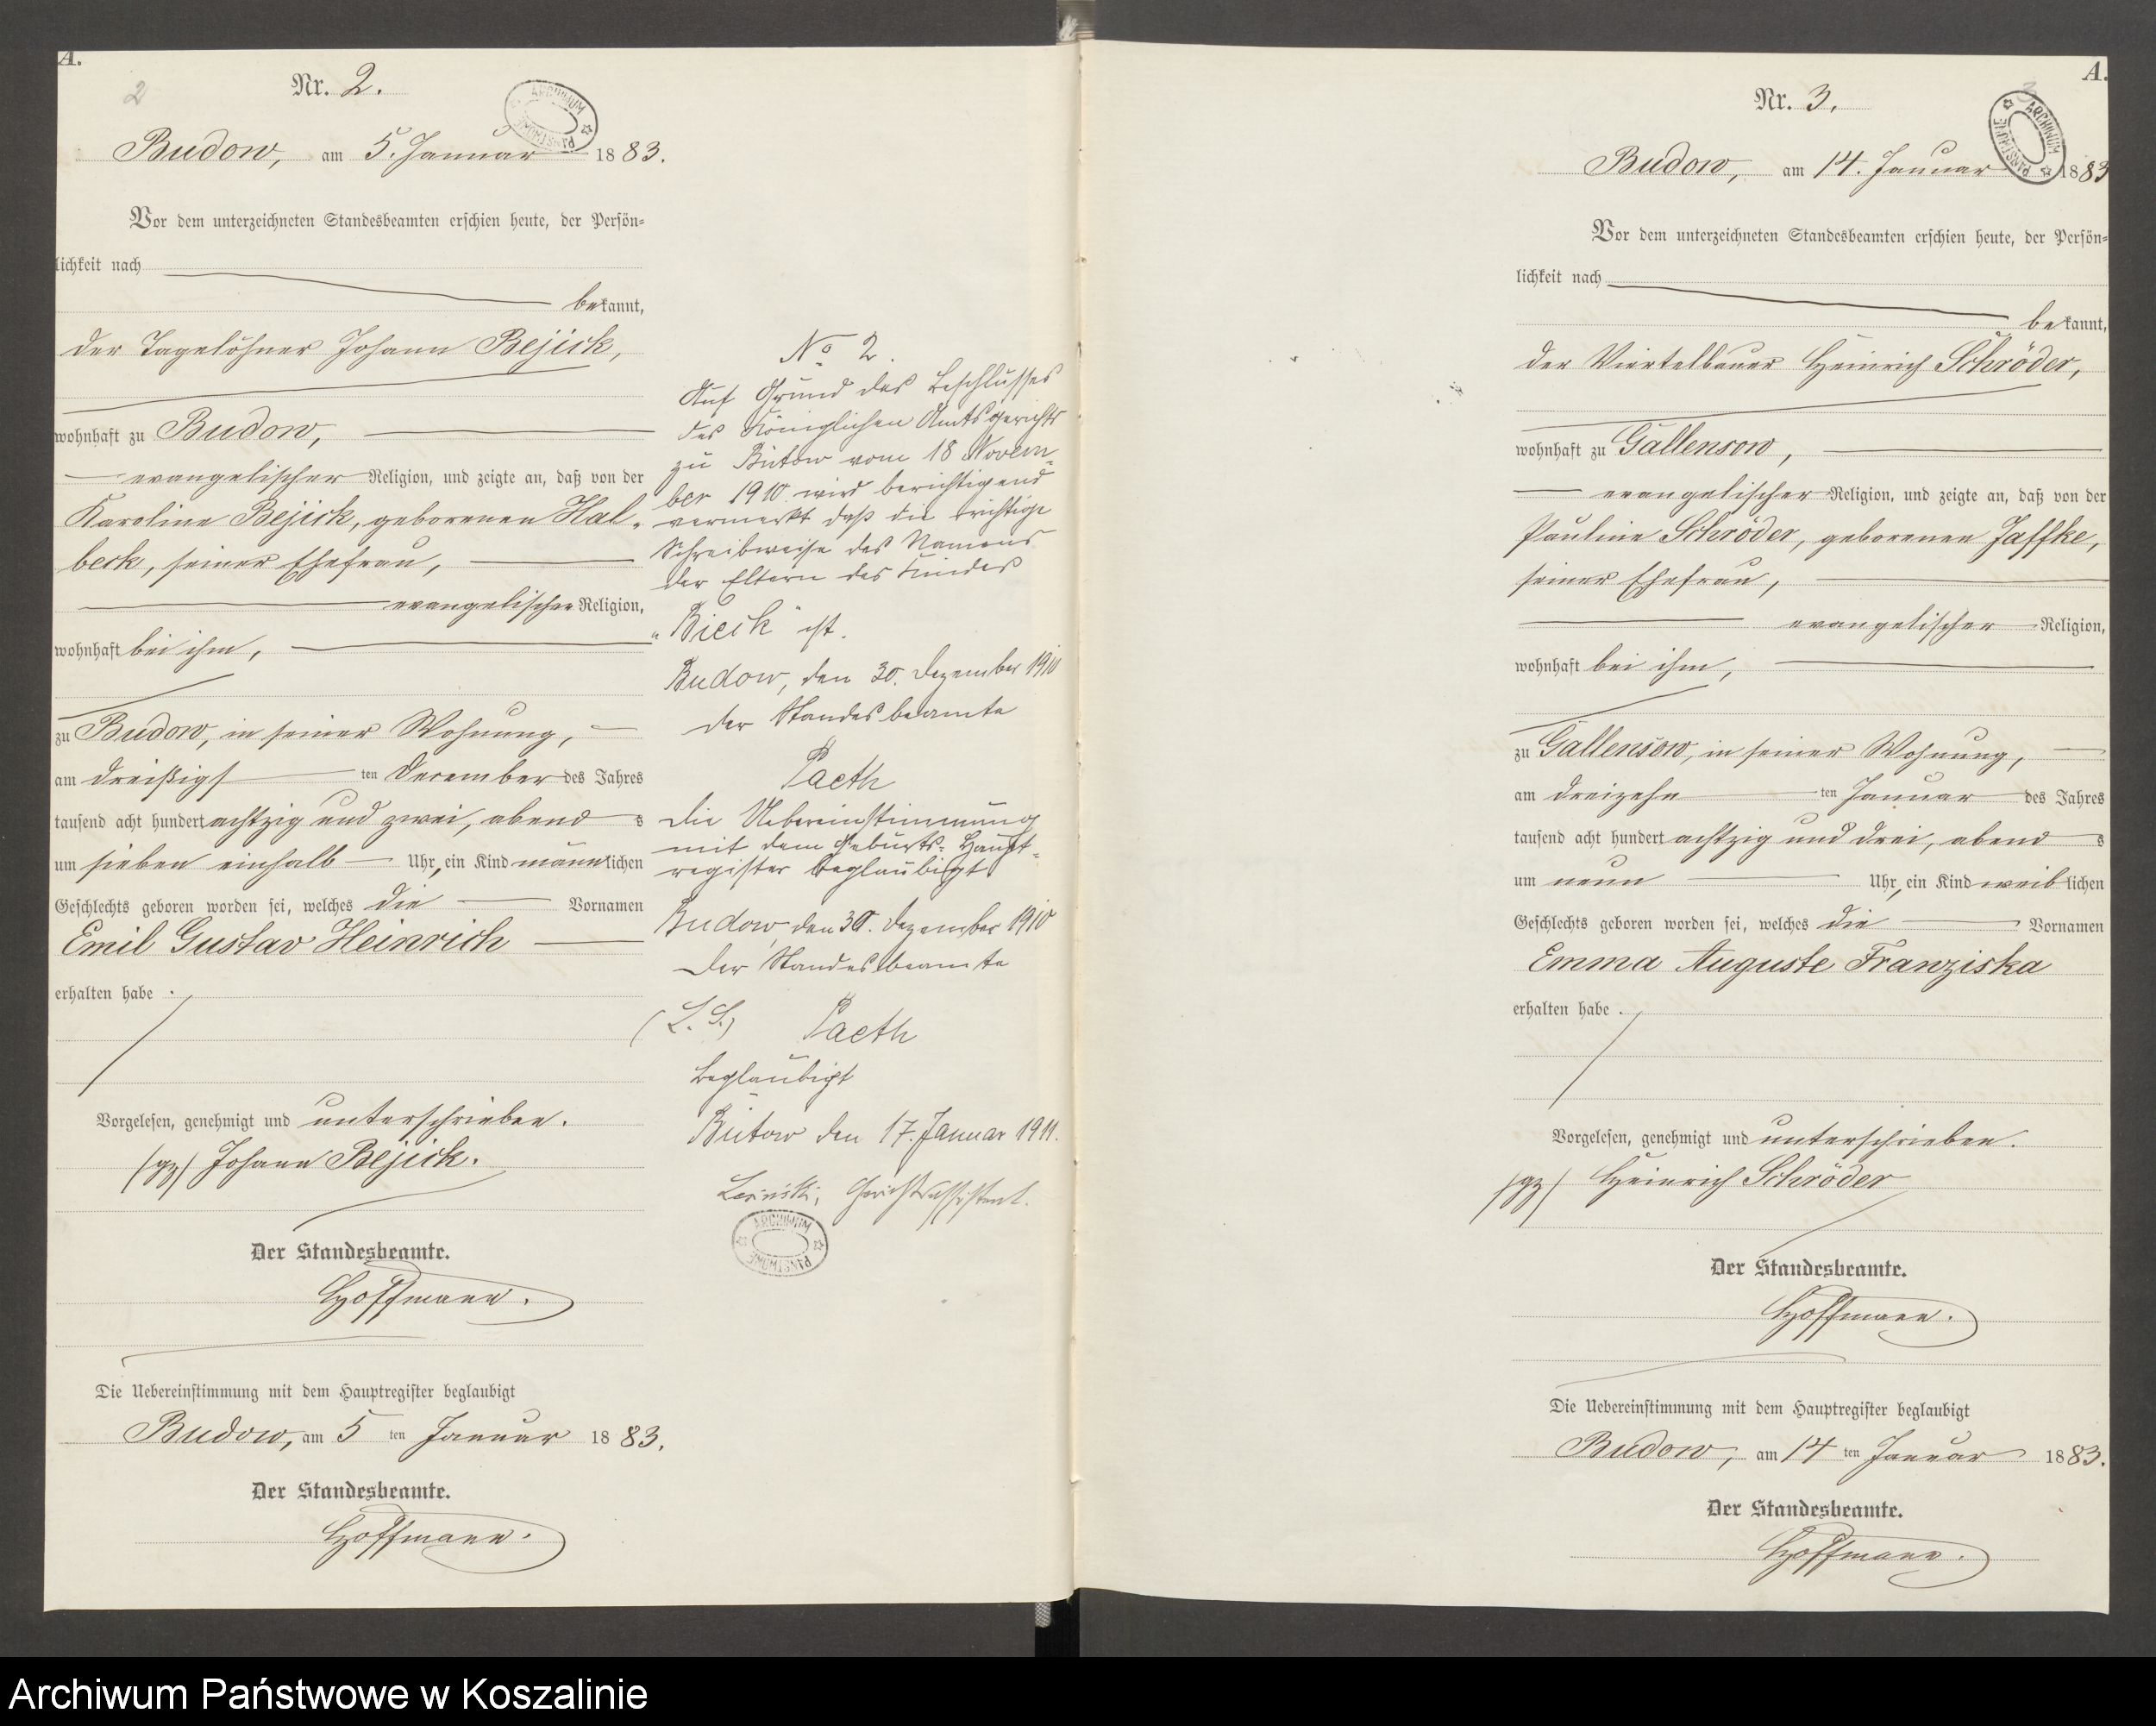 A.
2
Nr. 2.
ARCHIWUM PAŃSTWOWE
Budow, am 5. Januar 1883.
Vor dem unterzeichneten Standesbeamten erschien heute, der Persön-
lichkeit nach
bekannt,
der Tagelöhner Johann Bejick,
wohnhaft zu Budow,
evangelischer Religion, und zeigte an, daß von der
Karoline Bejick, geborenen Hal-
beck, seiner Ehefrau,
evangelischer Religion,
wohnhaft bei ihm,
zu Budow, in seiner Wohnung,
am dreißigs ten December des Jahres
tausend acht hundert achtzig und zwei, abend s
um sieben einhalb Uhr, ein Kind männlichen
Geschlechts geboren worden sei, welches die Vornamen
Emil Gustav Heinrich
erhalten habe.
Vorgelesen, genehmigt und unterschrieben.
(gz) Johann Bejick.
Der Standesbeamte.
Hoffmann.
Die Uebereinstimmung mit dem Hauptregister beglaubigt
Budow, am 5 ten Januar 1883.
Der Standesbeamte.
Hoffmann.
No 2.
Auf Grund des Beschlusses
des Königlichen Amtsgerichts
zu Bütow vom 18 Novem-
ber 1910 wird berichtigend
vermerkt daß die richtige
Schreibweise des Namens
der Eltern des Kindes
„Bieck" ist.
Budow, den 30. Dezember 1910
Der Standesbeamte
Paeth
Die Uebereinstimmung
mit dem Geburts-Haupt-
register beglaubigt
Budow, den 30. Dezember 1910
Der Standesbeamte
(L. S.) Paeth
Beglaubigt
Bütow den 17. Januar 1911.
Gerichtsassistent.
ARCHIWUM PAŃSTWOWE
A.
3
Nr. 3.
ARCHIWUM PAŃSTWOWE
Budow, am 14. Januar 1883
Vor dem unterzeichneten Standesbeamten erschien heute, der Persön-
lichkeit nach
bekannt,
der Viertelbauer Heinrich Schröder,
wohnhaft zu Gallensow,
evangelischer Religion, und zeigte an, daß von der
Pauline Schröder, geborenen Jaffke,
seiner Ehefrau,
evangelischer Religion,
wohnhaft bei ihm,
zu Gallensow, in seiner Wohnung,
am dreizehn ten Januar des Jahres
tausend acht hundert achtzig und drei, abend s
um neun Uhr, ein Kind weiblichen
Geschlechts geboren worden sei, welches die Vornamen
Emma Auguste Franziska
erhalten habe.
Vorgelesen, genehmigt und unterschrieben.
(gz) Heinrich Schröder
Der Standesbeamte.
Hoffmann.
Die Uebereinstimmung mit dem Hauptregister beglaubigt
Budow, am 14 ten Januar 1883.
Der Standesbeamte.
Hoffmann.
Archiwum Państwowe w Koszalinie